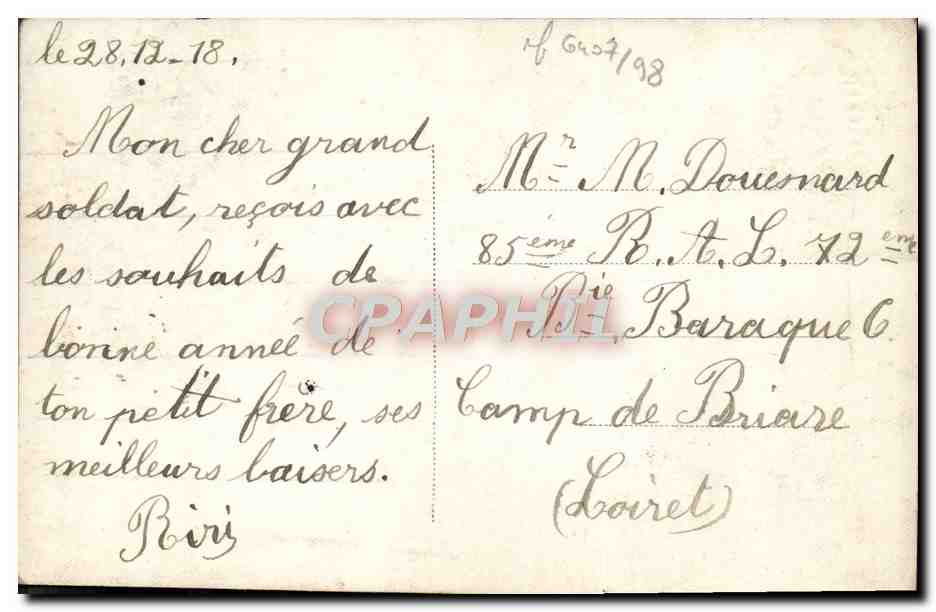 le 28.12-18.
Mon cher grand
soldat, reçois avec
les souhaits de
bonne année de
ton petit frère, ses
meilleurs baisers.
Riri
Mr M. Douesnard
85ème R.A.L. 72ème
Bie Baraque 6
Camp de Briare
(Loiret)
CPAPHIL